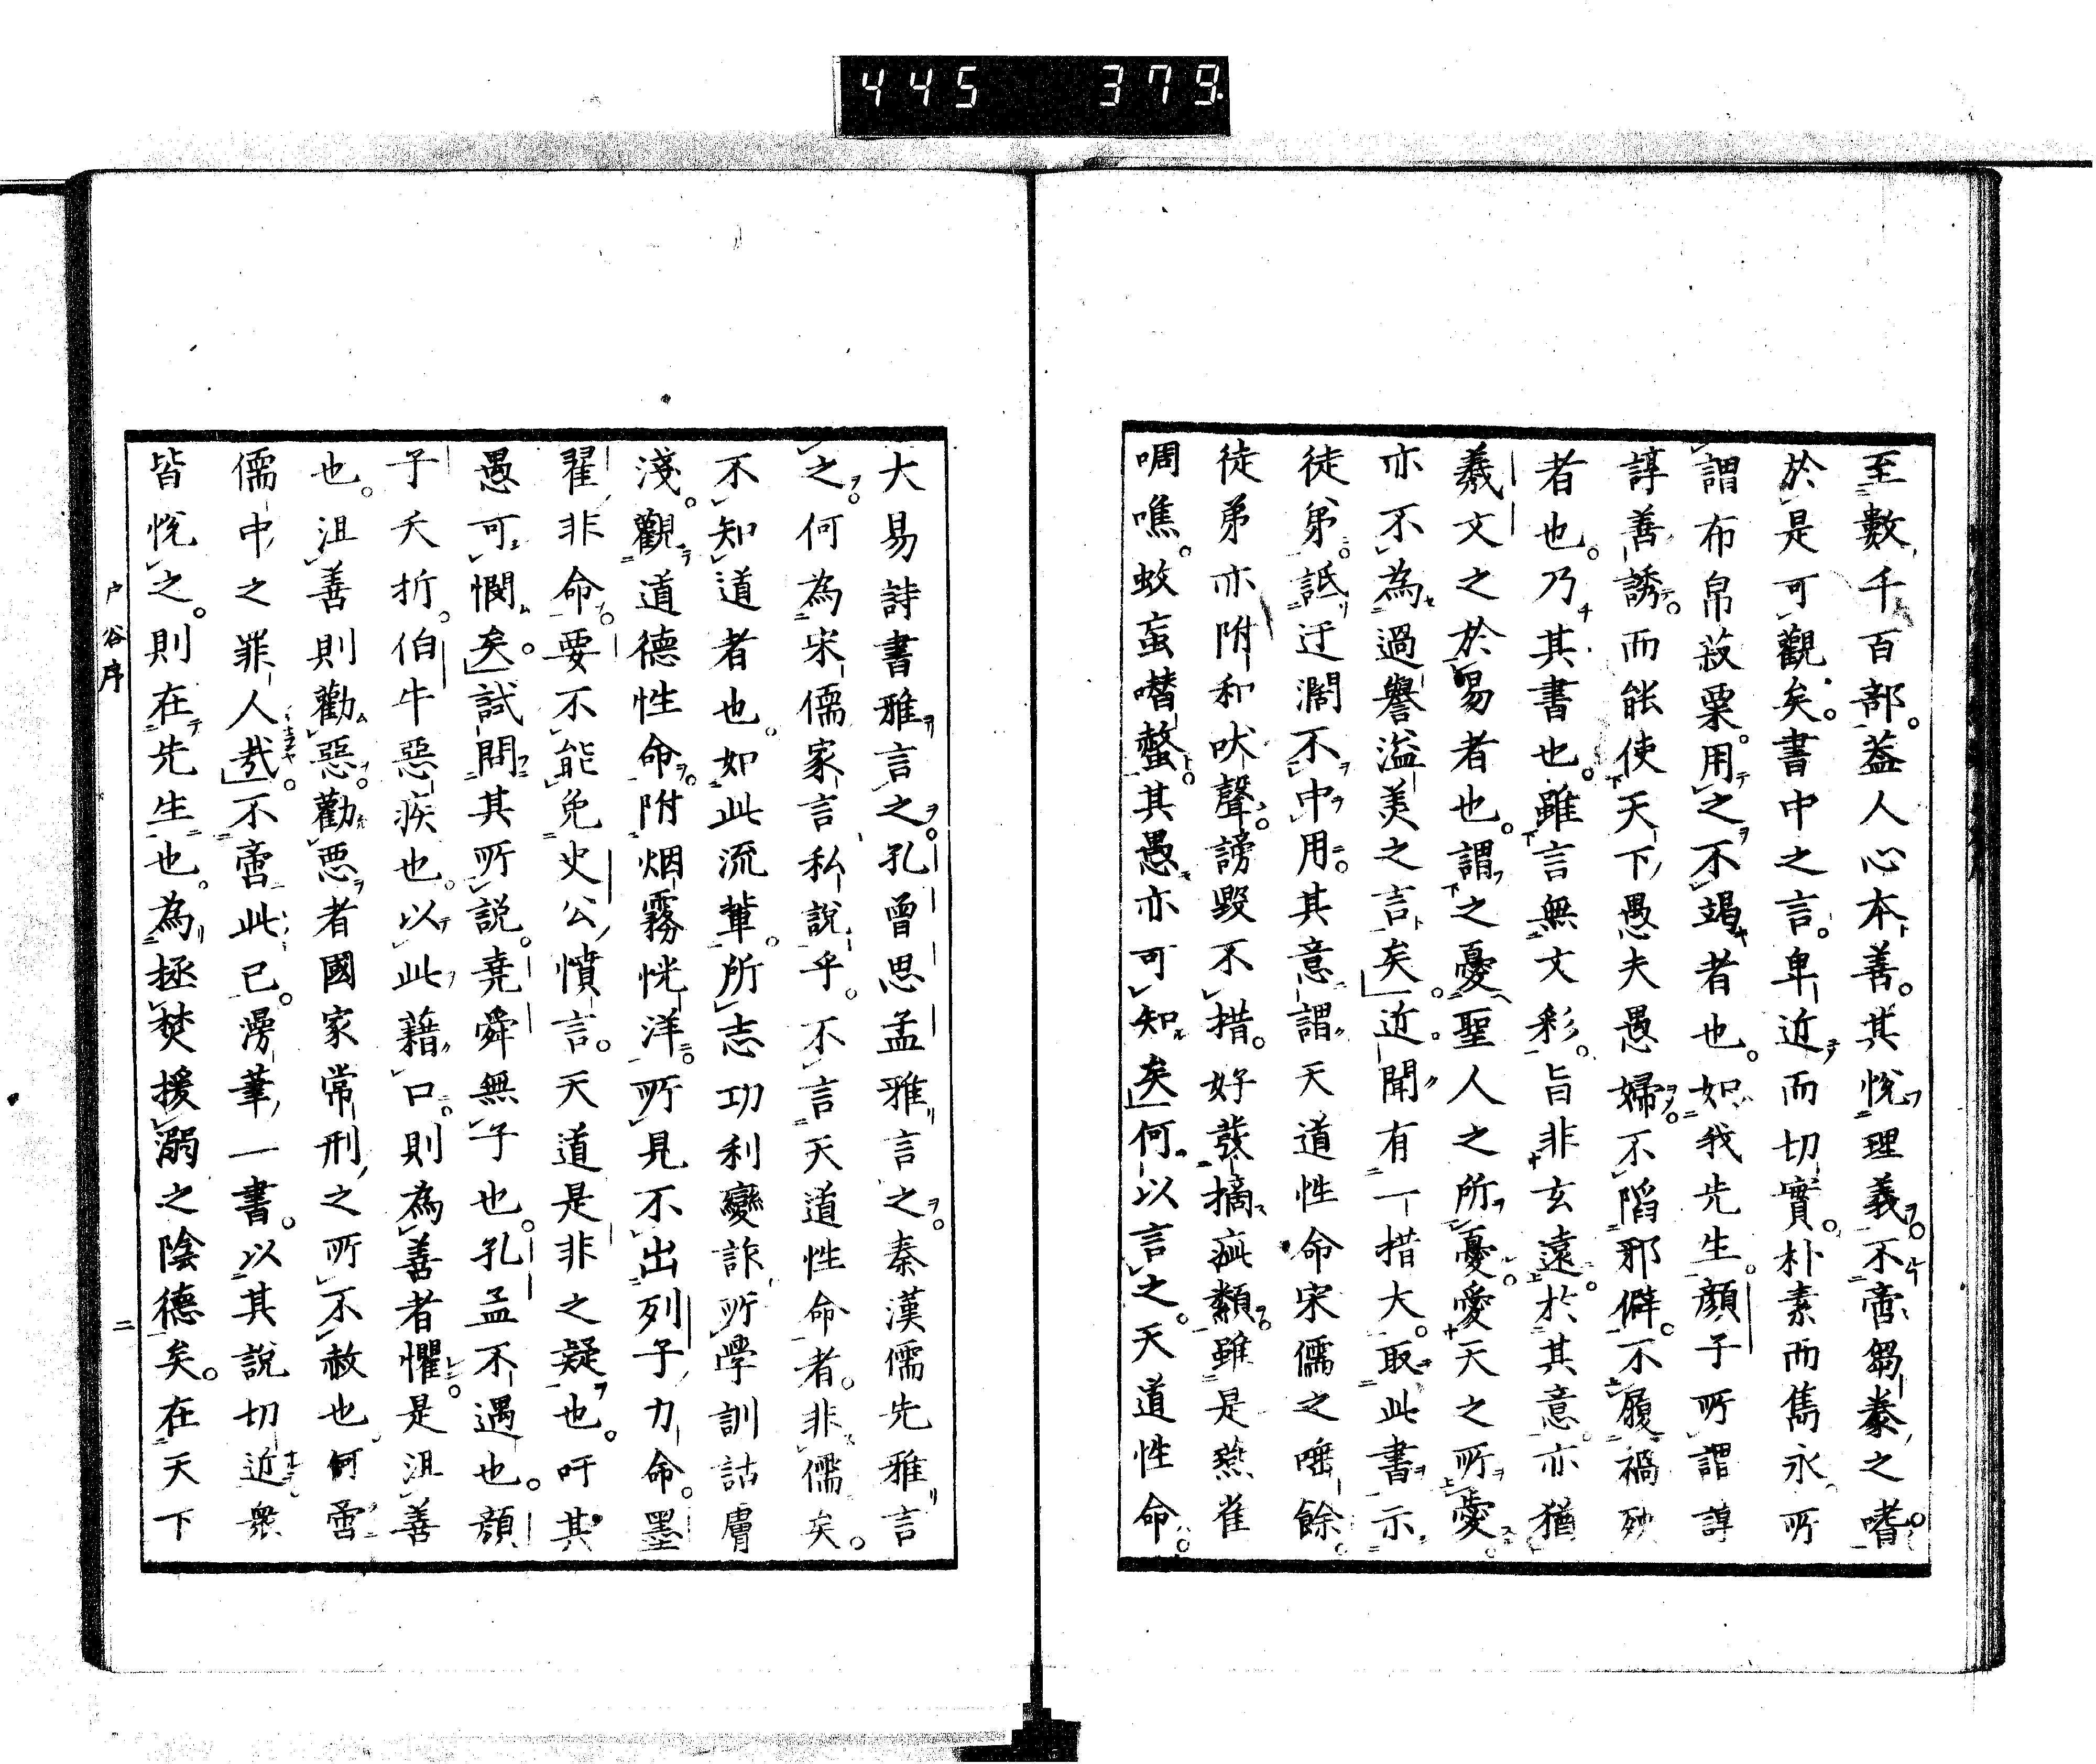 445 379
至數千百部。蓋人心本善。其悅理義。不啻芻豢之嗜。
於是可觀矣。書中之言。卑近而切實。朴素而雋永。所
謂布帛菽粟。用之不竭者也。如我先生。顏子所謂諄
諄善誘。而能使天下愚夫愚婦。不陷邪僻。不履禍殃
者也。乃其書也。雖言無文彩。旨非玄遠。於其意。亦猶
羲文之於易者也。謂之憂聖人之所憂。愛天之所愛。
亦不為過譽溢美之言矣。近聞有一措大。取此書示
徒弟。詆迂濶不中用。其意謂天道性命宋儒之唾餘。
徒弟亦附和吠聲。謗毀不措。好發摘疵纇。雖是燕雀
啁噍。蚊䖟噆螫。其愚亦可知矣。何以言之。天道性命。
大易詩書雅言之。孔曾思孟雅言之。秦漢儒先雅言
之。何為宋儒家言私說乎。不言天道性命者。非儒矣。
不知道者也。如此流輩。所志功利變詐。所學訓詁膚
淺。觀道德性命。附烟霧恍洋。所見不出列子力命。墨
翟非命。要不能免史公憤言。天道是非之疑也。吁其
愚可憫矣。試問其所說。堯舜無子也。孔孟不遇也。顏
子夭折。伯牛惡疾也。以此藉口。則為善者懼。是沮善
也。沮善則勸惡。勸惡者國家常刑之所不赦也。何啻
儒中之罪人哉。不啻此已。漫筆一書。以其說切近。衆
皆悅之。則在先生也。為拯焚援溺之陰德矣。在天下
戶谷序
二